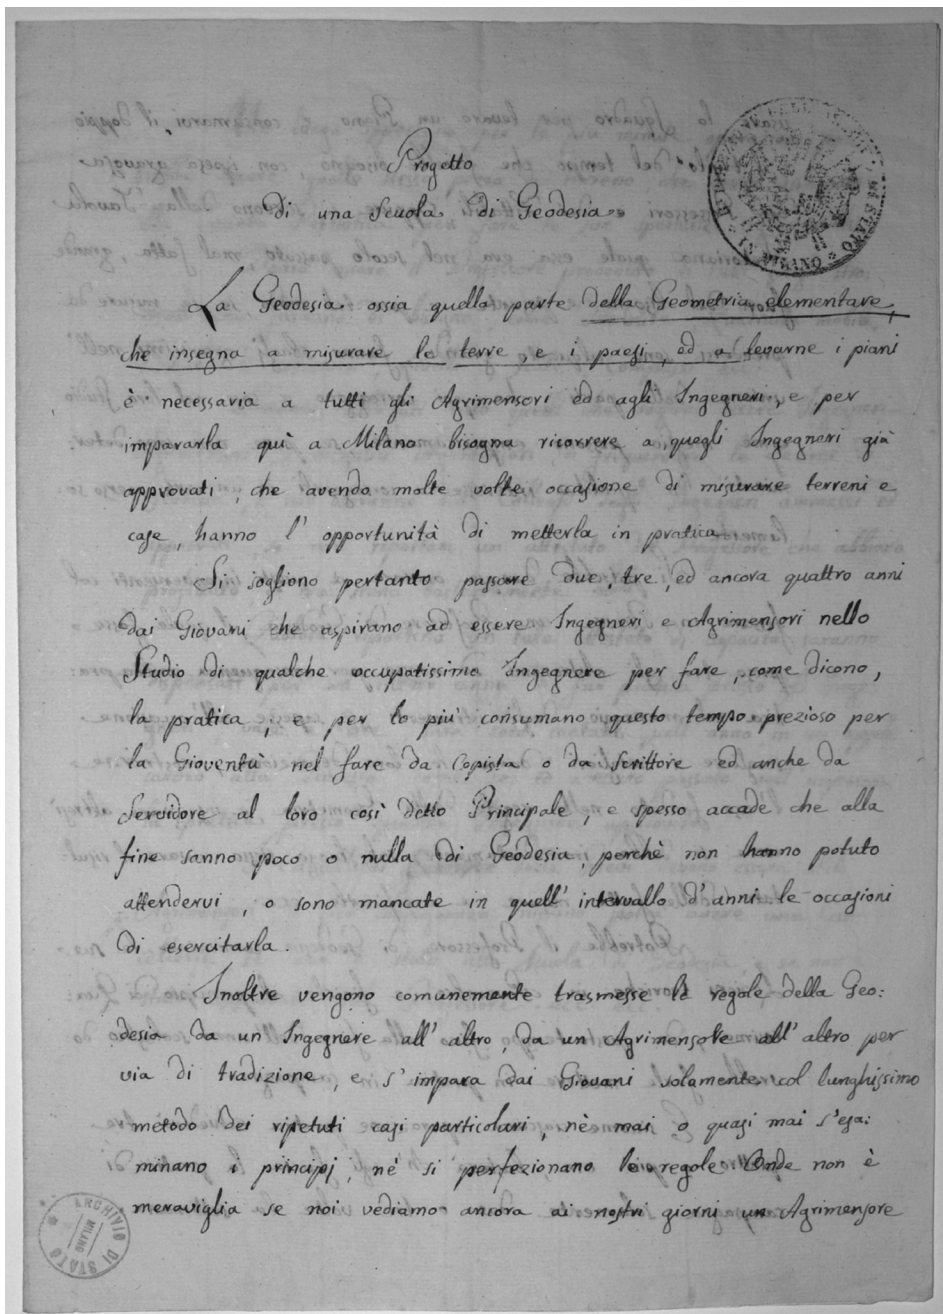 Progetto
di una Scuola di Geodesia
La Geodesia ossia quella parte della Geometria elementare,
che insegna a misurare le terre, e i paesi, ed a levarne i piani
è necessaria a tutti gli Agrimensori ed agli Ingegneri, e per
impararla quì a Milano bisogna ricorrere a quegli Ingegneri già
approvati, che avendo molte volte occasione di misurare terreni e
case, hanno l'opportunità di metterla in pratica
Si sogliono pertanto passare due, tre, ed ancora quattro anni
dai Giovani che aspirano ad essere Ingegneri e Agrimensori nello
Studio di qualche occupatissimo Ingegnere per fare, come dicono,
la pratica, e per lo più consumano questo tempo prezioso per
la Gioventù nel fare da Copista o da Scrittore ed anche da
Servidore al loro così detto Principale, e spesso accade che alla
fine sanno poco o nulla di Geodesia, perchè non hanno potuto
attendervi, o sono mancate in quell'intervallo d'anni le occasioni
di esercitarla.
Inoltre vengono comunemente trasmesse le regole della Geo:
desia da un Ingegnere all'altro, da un Agrimensore all'altro per
via di tradizione, e s'impara dai Giovani solamente col lunghissimo
metodo dei ripetuti casi particolari, nè mai o quasi mai s'esa:
minano i principj, nè si perfezionano le regole Onde non è
meraviglia se noi vediamo ancora ai nostri giorni un Agrimensore
ARCHIVIO DI STATO
MILANO